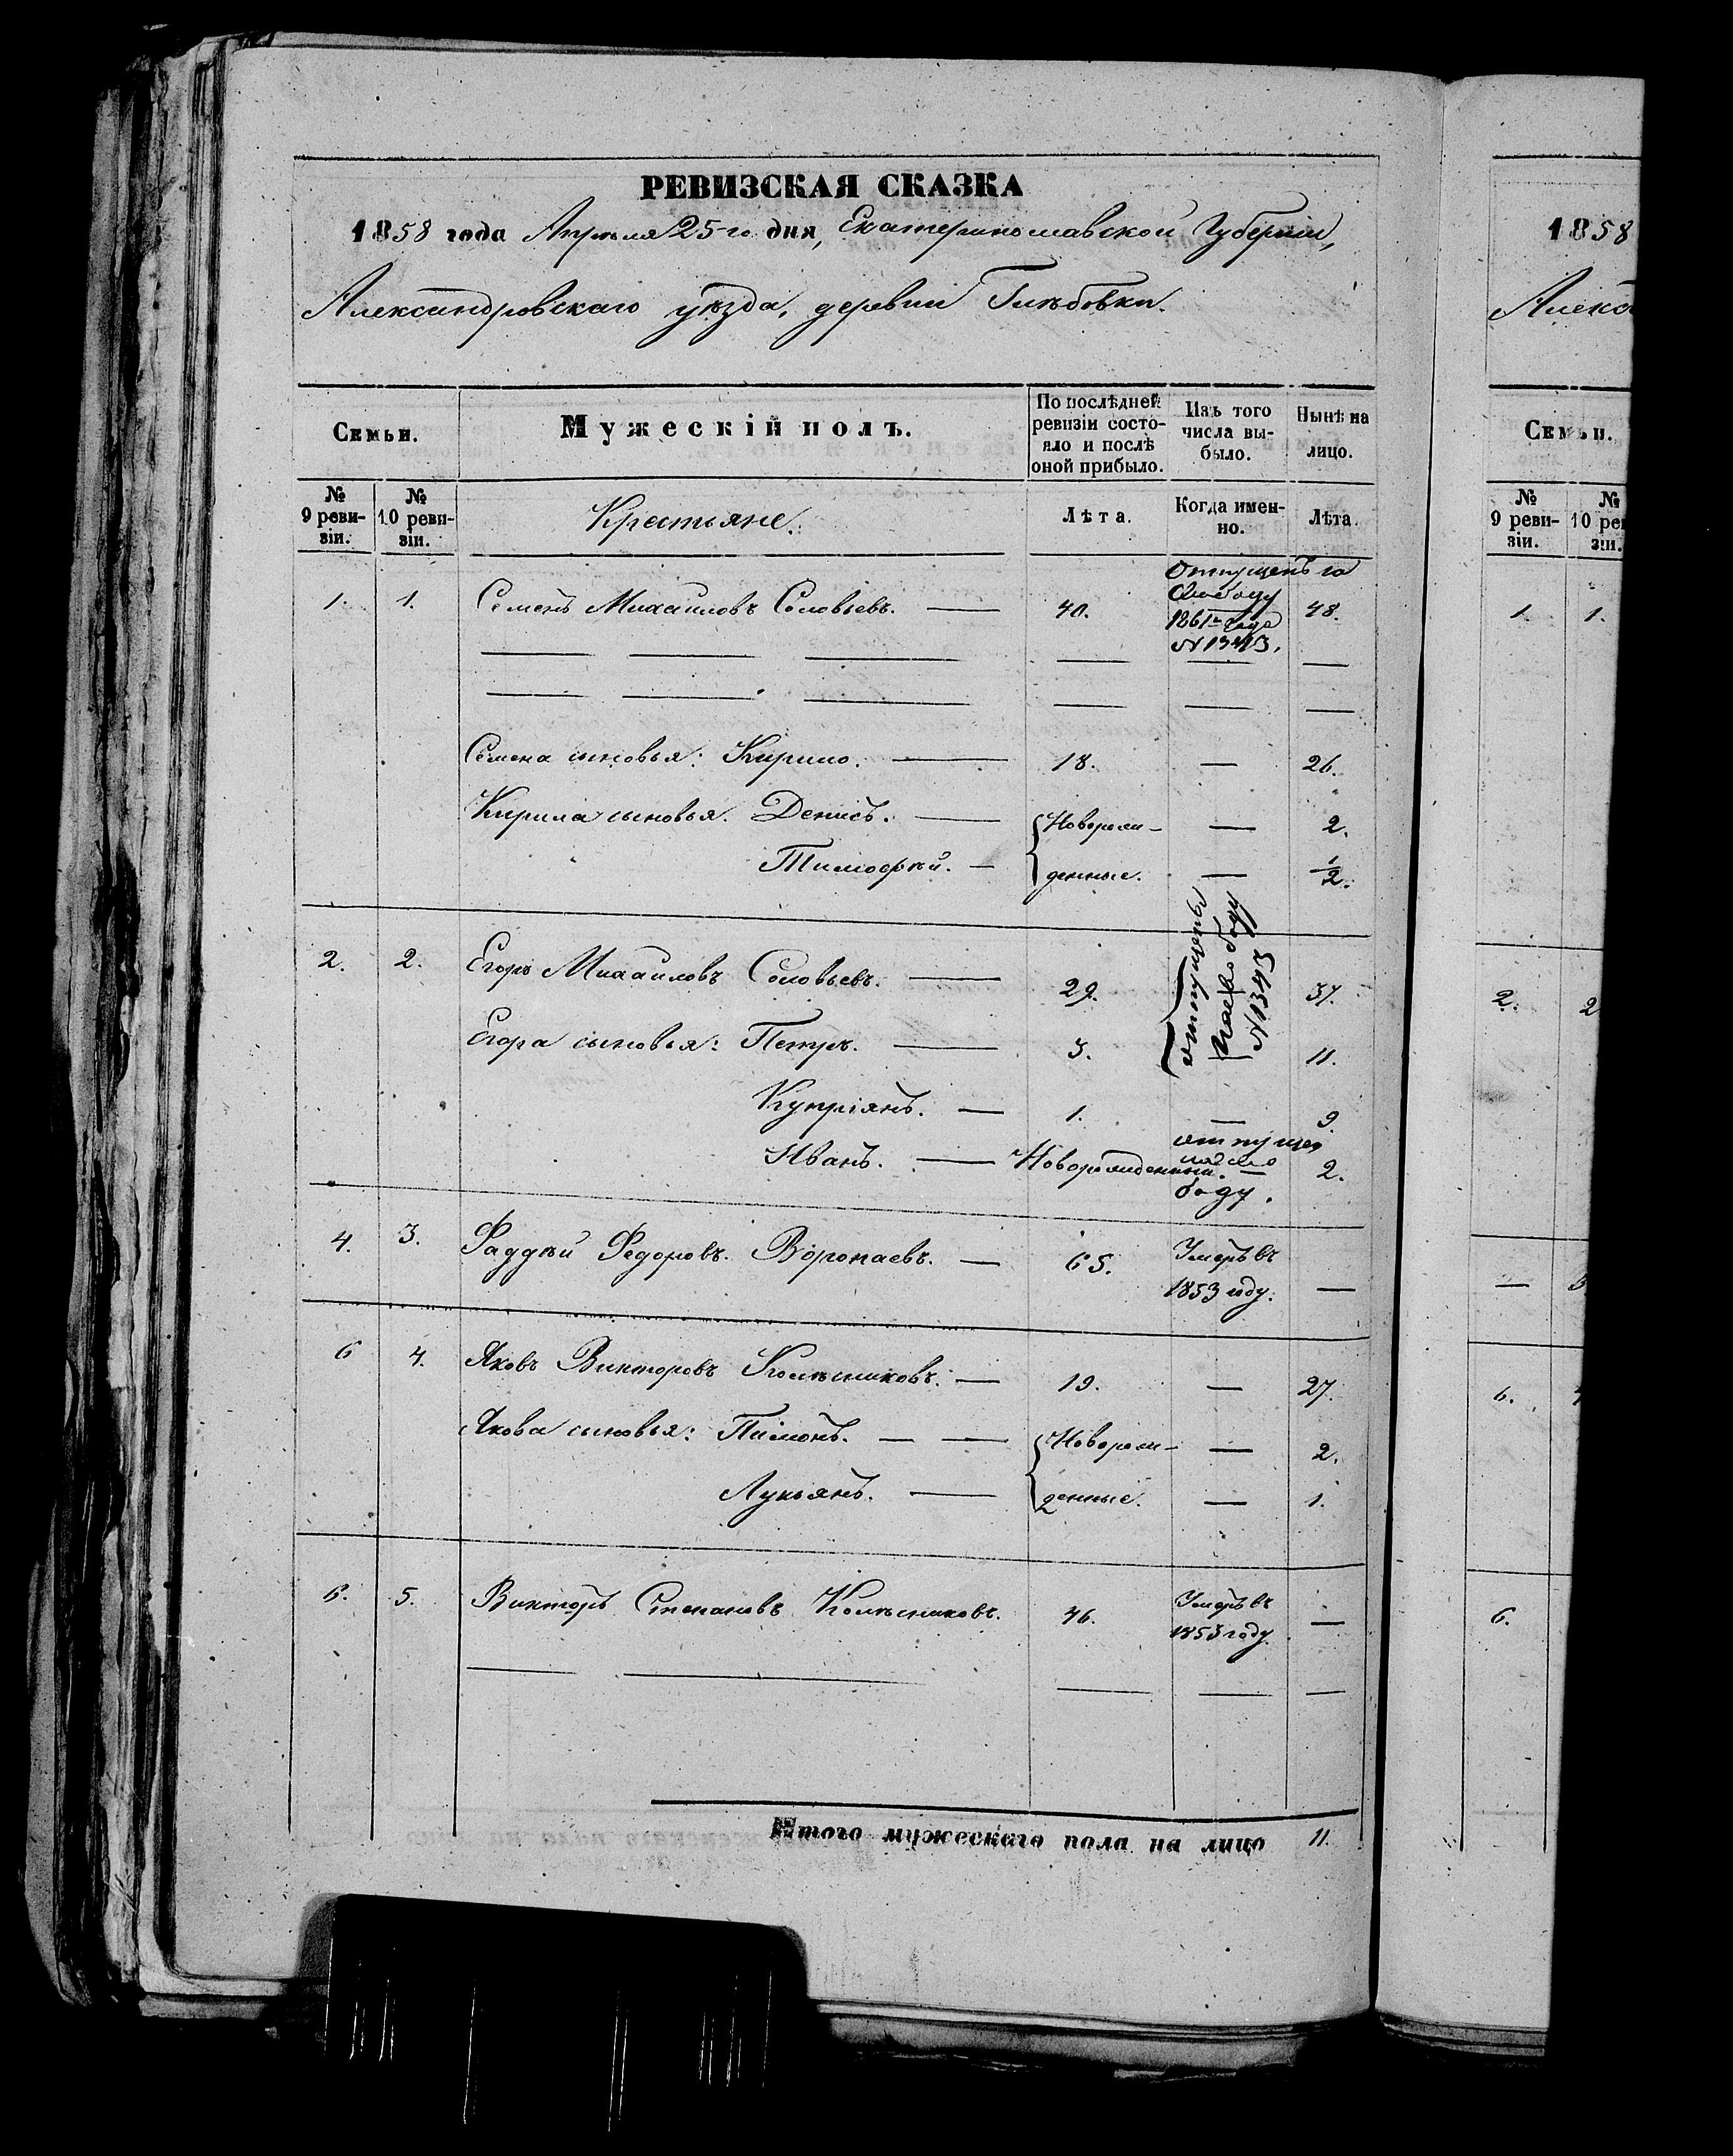 РЕВИЗСКАЯ СКАЗКА
1858 года Апрѣля 25-го дня, Екатеринославской Губерніи,
Александровскаго уѣзда, деревни Глѣбовки.
Семьи.
Мужескій полъ.
По послѣдней ревизіи состояло и послѣ оной прибыло.
Изъ того числа выбыло.
Нынѣ на лицо.
№ 9 ревизіи.
№ 10 ревизіи.
Крестьяне.
Лѣта.
Когда именно.
Лѣта.
1. 1. Семенъ Михайловъ Соловьевъ. 40. 48.
Отпущенъ на
свободу
1861 года
Семена сыновья: Кирило. 18. — 26.
Кирила сыновья. Денисъ. Новорож- — 2.
Тимофѣй. — денные. — 1/2.
2. 2. Егоръ Михайловъ Соловьевъ. 29. 37.
Отпущены
на свободу
Егора сыновья: Петръ. 3. 11.
Купріянъ. — 1. — 9.
Иванъ. — Новорожденный. — 2.
отпущен
на сво
боду.
4. 3. Фаддѣй Федоровъ. Воропаевъ. — 65. Умеръ въ
1853 году. —
6 4. Яковъ Викторовъ Колѣсниковъ. — 19. — 27.
Якова сыновья: Пимонъ. — — Новорож- — 2.
Лукьянъ. — денные. — 1.
6. 5. Викторъ Степановъ Колѣсниковъ. 46. Умеръ въ
1853 году. —
Итого мужескаго пола на лицо 11.
1858
Алекса
Семьи.
№ 9 ревизіи.
№ 10 рев
зіи.
1. 1.
2. 2
— 3
6. 4
6.